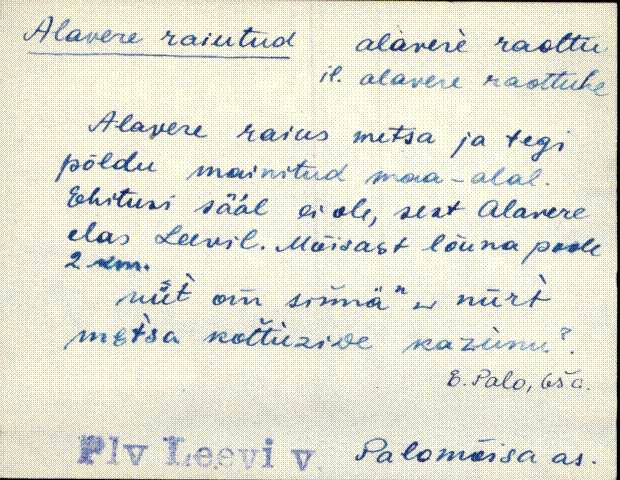 Alavere raiutud alàverè raottu
il. alavere raottuhe
Alavere raius metsa ja tegi
põldu mainitud maa-alal.
Ehitusi sääl ei ole, sest Alavere
elas Leevil. Mõisast lõuna poole
2 km.
om sinnä nūrì
metsa kazūnu.
E. Palo, 65 a.
Plv Leevi v. Palomõisa as.